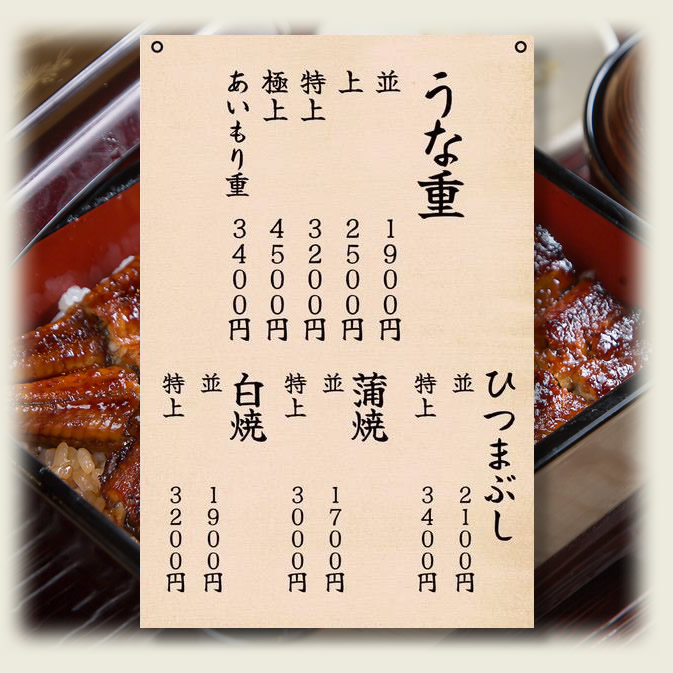 うな重
並 1900円
上 2500円
特上 3200円
極上 4500円
あいもり重 3400円
ひつまぶし
並 2100円
特上 3400円
蒲焼
並 1700円
特上 3000円
白焼
並 1900円
特上 3200円